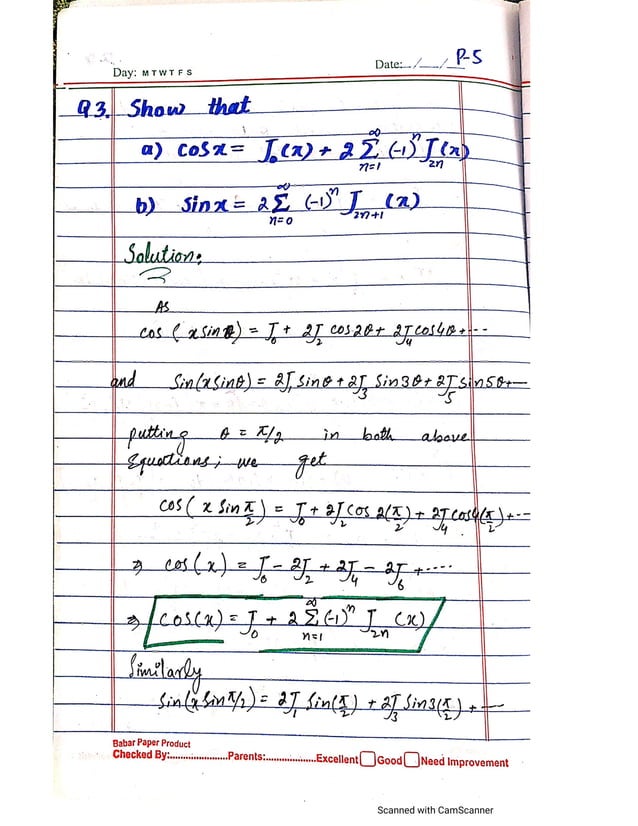 Day: M T W T F S
Date:__/__/__ P-5
Q3. Show that
a) cosx = J₀(x) + 2 ∑_{n=1}^{∞} (-1)ⁿ J_{2n}(x)
b) Sinx = 2 ∑_{n=0}^{∞} (-1)ⁿ J_{2n+1}(x)
Solution:
As
cos(x sinθ) = J₀ + 2J₂ cos2θ + 2J₄ cos4θ + ---
and Sin(x sinθ) = 2J₁ sinθ + 2J₃ Sin3θ + 2J₅ sin5θ + --
putting θ = π/2 in both above
Equations; we get
cos(x Sin π/2) = J₀ + 2J₂ cos 2(π/2) + 2J₄ cos4(π/2) + ---
⇒ cos(x) = J₀ - 2J₂ + 2J₄ - 2J₆ + ----
⇒ cos(x) = J₀ + 2 ∑_{n=1}^{∞} (-1)ⁿ J_{2n}(x)
Similarly
Sin(x Sin π/2) = 2J₁ Sin(π/2) + 2J₃ Sin3(π/2) + --
Babar Paper Product
Checked By:......................Parents:..................Excellent Good Need Improvement
Scanned with CamScanner